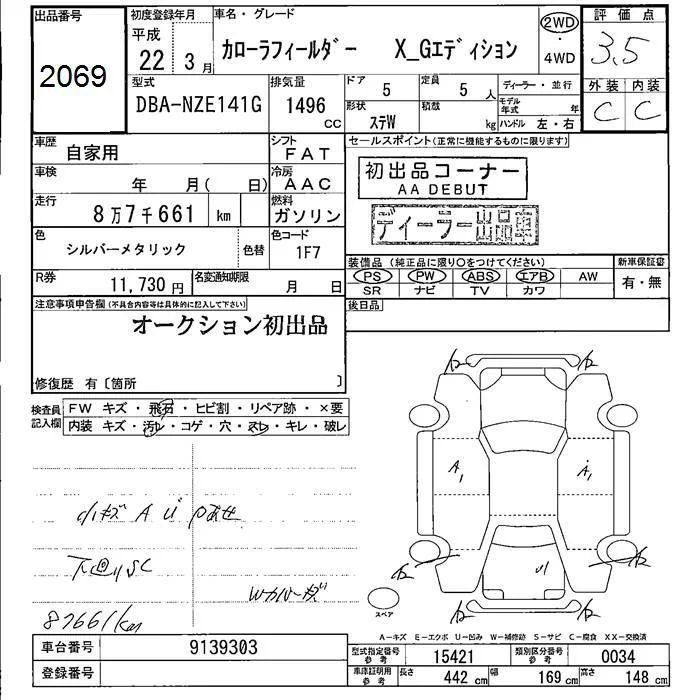 出品番号
2069
初度登録年月
平成
22 3月
車名・グレード
カローラフィールダー X_Gエディション
2WD
・
4WD
評価点
3.5
外装 内装
C C
型式
DBA-NZE141G
排気量
1496
CC
ドア
5
定員
5 人
形状
ステW
積載
kg
ディーラー・並行
モデル
年式 年
ハンドル 左・右
車歴
自家用
シフト
FAT
車検
年 月( 日)
冷房
AAC
走行
8万7千661 km
燃料
ガソリン
色
シルバーメタリック
色替
色コード
1F7
R券
11,730 円
名変通知期限
月 日
セールスポイント(正常に機能するものに限ります)
初出品コーナー
AA DEBUT
ディーラー出品車
装備品(純正品に限り○をつけてください)
新車保証書
PS PW ABS エアB AW
SR ナビ TV カワ
有・無
後日品
注意事項申告欄(不具合内容等は具体的に記入して下さい)
オークション初出品
修復歴 有〔箇所 〕
検査員
記入欄
FW キズ・飛石・ヒビ割・リペア跡・×要
内装 キズ・汚レ・コゲ・穴・スレ・キレ・破レ
小キズ A U
87661km
A1
A1
スペア
A-キズ E-エクボ U-凹み W-補修跡 S-サビ C-腐食 XX-交換済
車台番号
9139303
登録番号
型式指定番号
参考
15421
類別区分番号
参考
0034
車庫証明用
参考
長さ
442 cm
幅
169 cm
高さ
148 cm